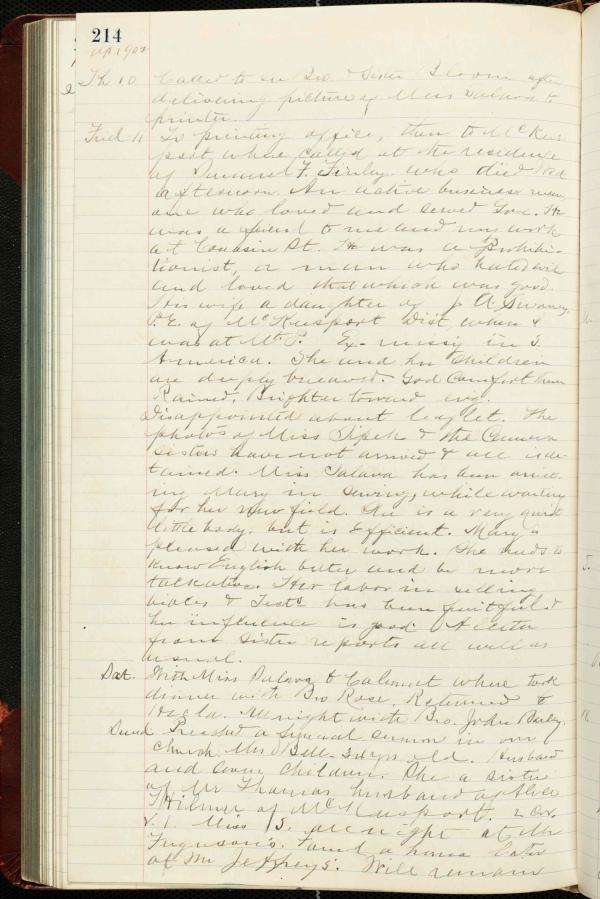 214
Ap. 1902
Th 10 Called to see Bro & Sister Bloom after
delivering picture of Miss to
printer.
Frid 11 To printing office, then to McKees-
port, where called at the residence
of Samuel F. Finley who died
afternoon. An active business man,
one who loved and served God. He
was a friend to me and my work
at Cousin St. He was a Prohibi-
tionist, a man who hated evil
and loved that which was good.
His wife a daughter of J. A. Swaney,
P.E. of McKeesport Dist, when I
was at Mt. P. Ex-missy in S.
America. She and her children
are deeply bereaved. God Comfort them
Rained. Brighter toward evg.
Disappointed about leaflet. The
photos of Miss Pipek & the
sisters have not arrived & all is de-
tained. Miss has been assist-
ing Mary in sewing, while waiting
for her new field. She is a very quiet
little body, but is Efficient. Mary is
pleased with her work. She needs to
know English better and be more
talkative. Her labor in selling
bibles & Tests has been fruitful &
her influence is good. A letter
from sister reports all well as
usual.
Sat. With Miss to Calumet where took
dinner with Bro Rose. Returned to
Hecla. All night with Bro. John
Sund Preached a funeral sermon in our
Church. Mrs Bell- 34 yrs old. Husband
and children. She a sister
of Mr Thomas, husband of Alice
of McKeesport. 2 Cor.
V. 1. Miss S. all night at Mr
Ferguson's. Found a home later
at Mr Jeffreys'. Will remain